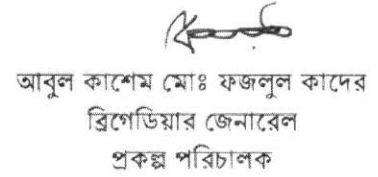 আবুল কাশেম মোঃ ফজলুল কাদের
ব্রিগেডিয়ার জেনারেল
প্রকল্প পরিচালক